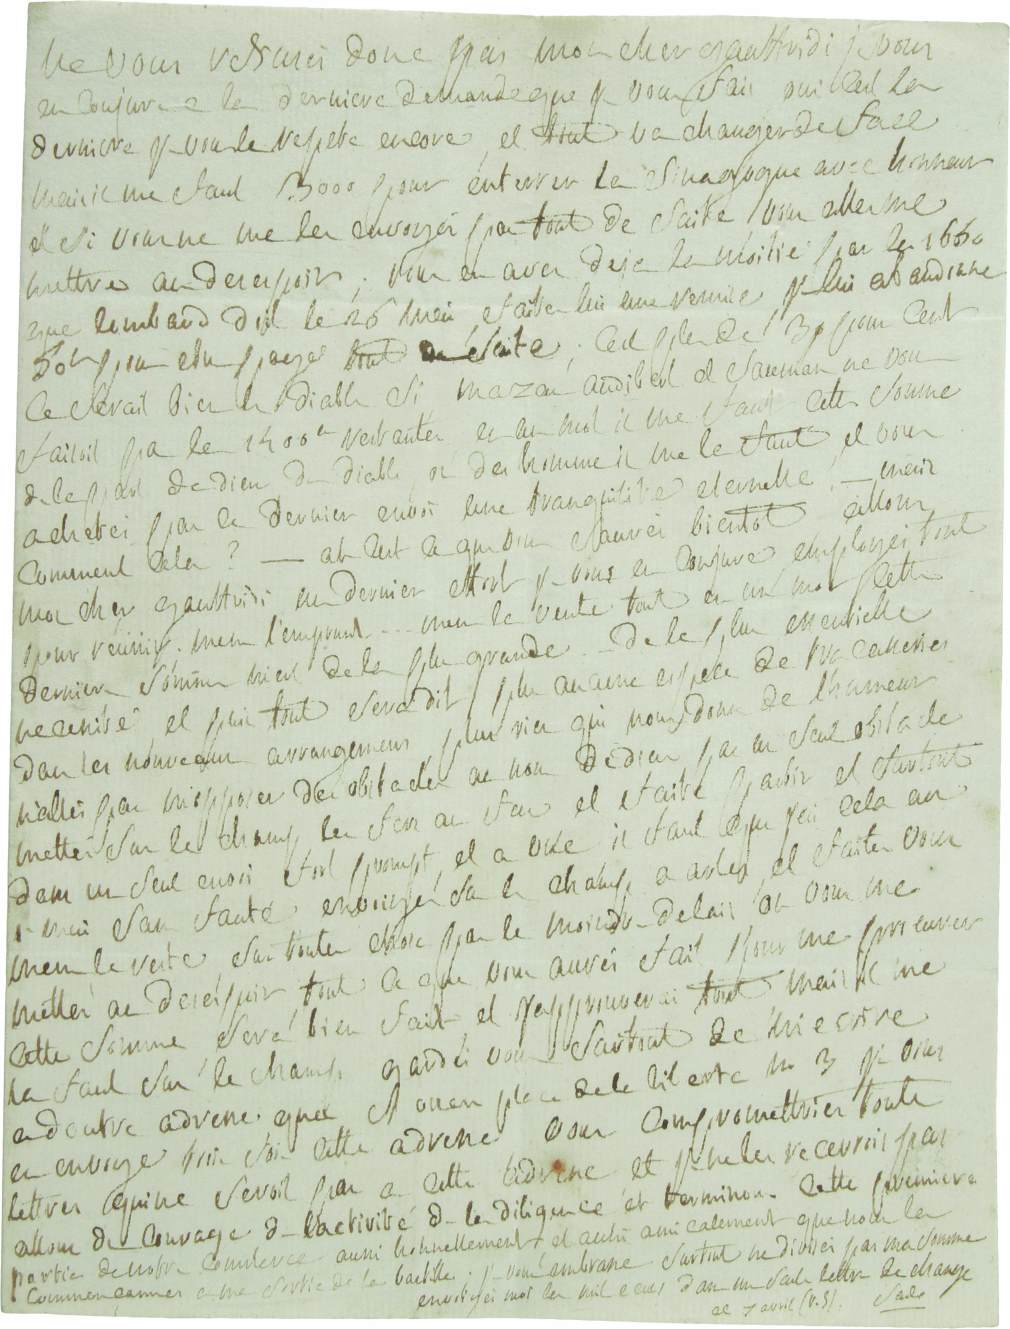 ne vous refusés donc pas mon cher gauffridi je vous
en conjure a la derniere demande que je vous fais oui c'est la
derniere je vous le repete encore, et tout va changer de face
mais il me faut 3000 pour enterrer la sinagogue avec honneur
et si vous ne me les envoyés pas tout de suite vous allés me
mettre au desespoir; vous en avés deja la moitié par les 1660
que lombard doit le 26 mai faites lui une remise je lui abandonne
50# pour etre payé tout de suite; c'est plus de 30 pour cent
ce serait bien le diable si mazan audibert et sauman ne vous
faisoit pas les 1400# restantes en un mot il me faut cette somme
de le part de dieu du diable ou des hommes il me le faut, et vous
achetés par ce dernier envoi une tranquilité eternelle! — mais
comment cela? — ah c'est ce que vous saurés bientot allons
mon cher gauffridi un dernier effort je vous en conjure employés tout
pour reussir. meme l'emprunt ... meme la vente tout en un mot cette
derniere somme m'est de la plus grande ... de la plus essentielle
necessité et puis tout sera dit plus aucune espece de tracasseries
dans les nouveaux arrangemens plus rien qui nous donne de l'humeur
n'allés pas m'opposer des obstacles au nom de dieu pas un seul obstacle
mettés sur le champ les fers au feu et faites partir et surtout
dans un seul envoi fort prompt, et a vue il faut que j'ai cela au
1er mai sans faute envoiyés sur le champ a arles et faites vous
meme le reste, sur toutes choses pas le moindre delais ou vous me
mettés au desespoir tout ce que vous aurés fait pour me procurer
cette somme sera bien fait et j'approuverai tout mais il me
la faut sur le champ gardés vous surtout de m'ecrire
a d'autre adresse que place de la liberté no 3 je vous
en envoye trois fois cette adresse vous compromettriés toute
lettres qui ne seroit pas a cette adresse et je ne les recevrois pas
allons du courage de l'activité de la diligence et terminons cette premiere
partie de notre commerce aussi honnettement et aussi amicalement que nous la
commençames a ma sortie de la bastille; je vous embrasse surtout ne divisés pas ma somme
envoiyés moi les mil ecus dans une seule lettre de change
ce 7 avril (v.s). Sade